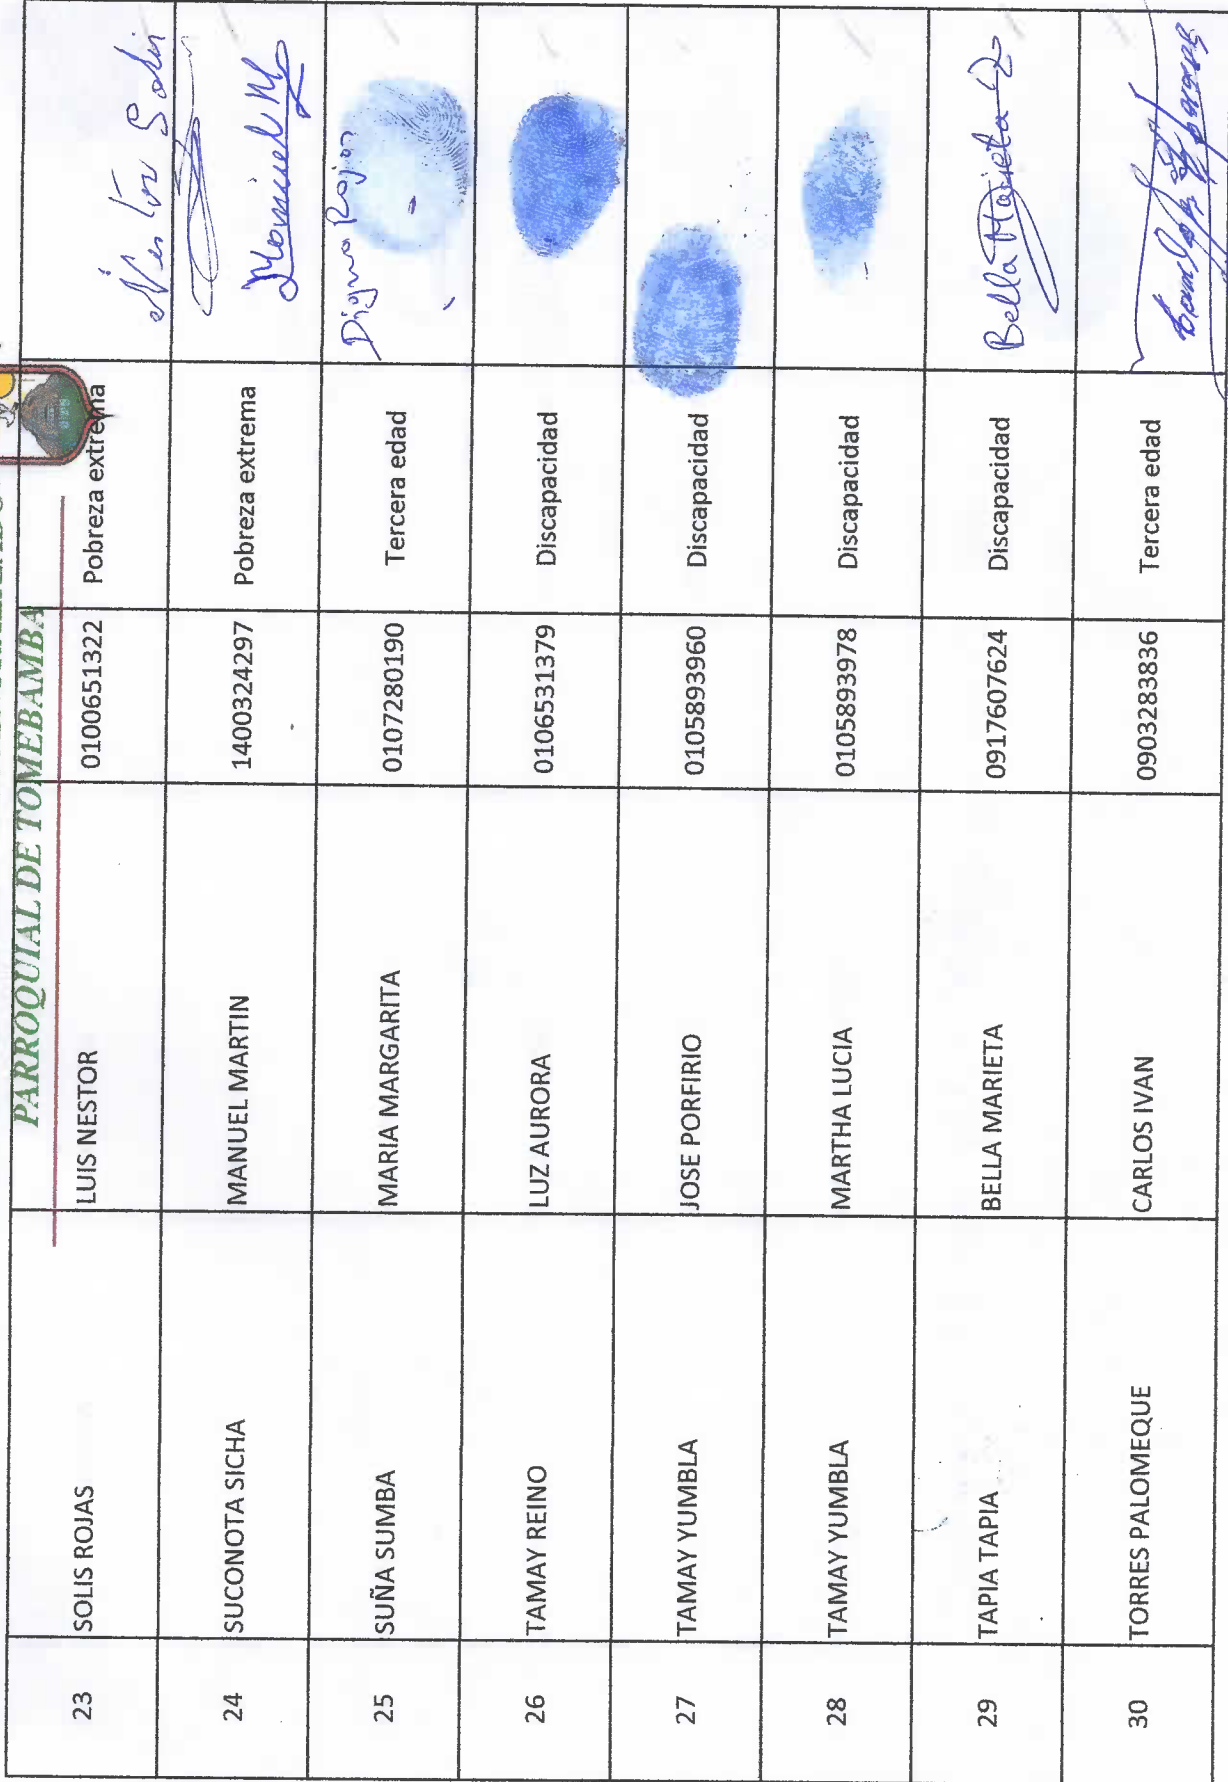 PARROQUIAL DE TOMEBAMBA
23 SOLIS ROJAS LUIS NESTOR 0100651322 Pobreza extrema
24 SUCONOTA SICHA MANUEL MARTIN 1400324297 Pobreza extrema Manuel M
25 SUÑA SUMBA MARIA MARGARITA 0107280190 Tercera edad Digna Rojas
26 TAMAY REINO LUZ AURORA 0106531379 Discapacidad
27 TAMAY YUMBLA JOSE PORFIRIO 0105893960 Discapacidad
28 TAMAY YUMBLA MARTHA LUCIA 0105893978 Discapacidad
29 TAPIA TAPIA BELLA MARIETA 0917607624 Discapacidad Bella Marieta
30 TORRES PALOMEQUE CARLOS IVAN 0903283836 Tercera edad